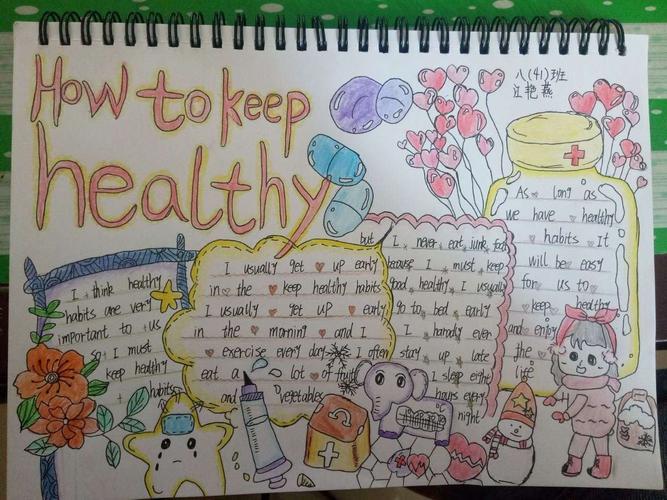 How to keep
healthy
八(41)班
江艳燕
I think healthy
habits are very
important to us
so I must
keep healthy
habits
I usually get up early
in the keep healthy habits
I usually get up early
in the morning and I
exercise every day I often
eat a lot of fruits
and vegetables
but I never eat junk food
because I must keep
good healthy I usually
go to bed early
I haradly even
stay up late
I sleep eight
hours every
night
As long as
we have healthy
habits It
will be easy
for us to
keep healthy
and enjoy
the
life